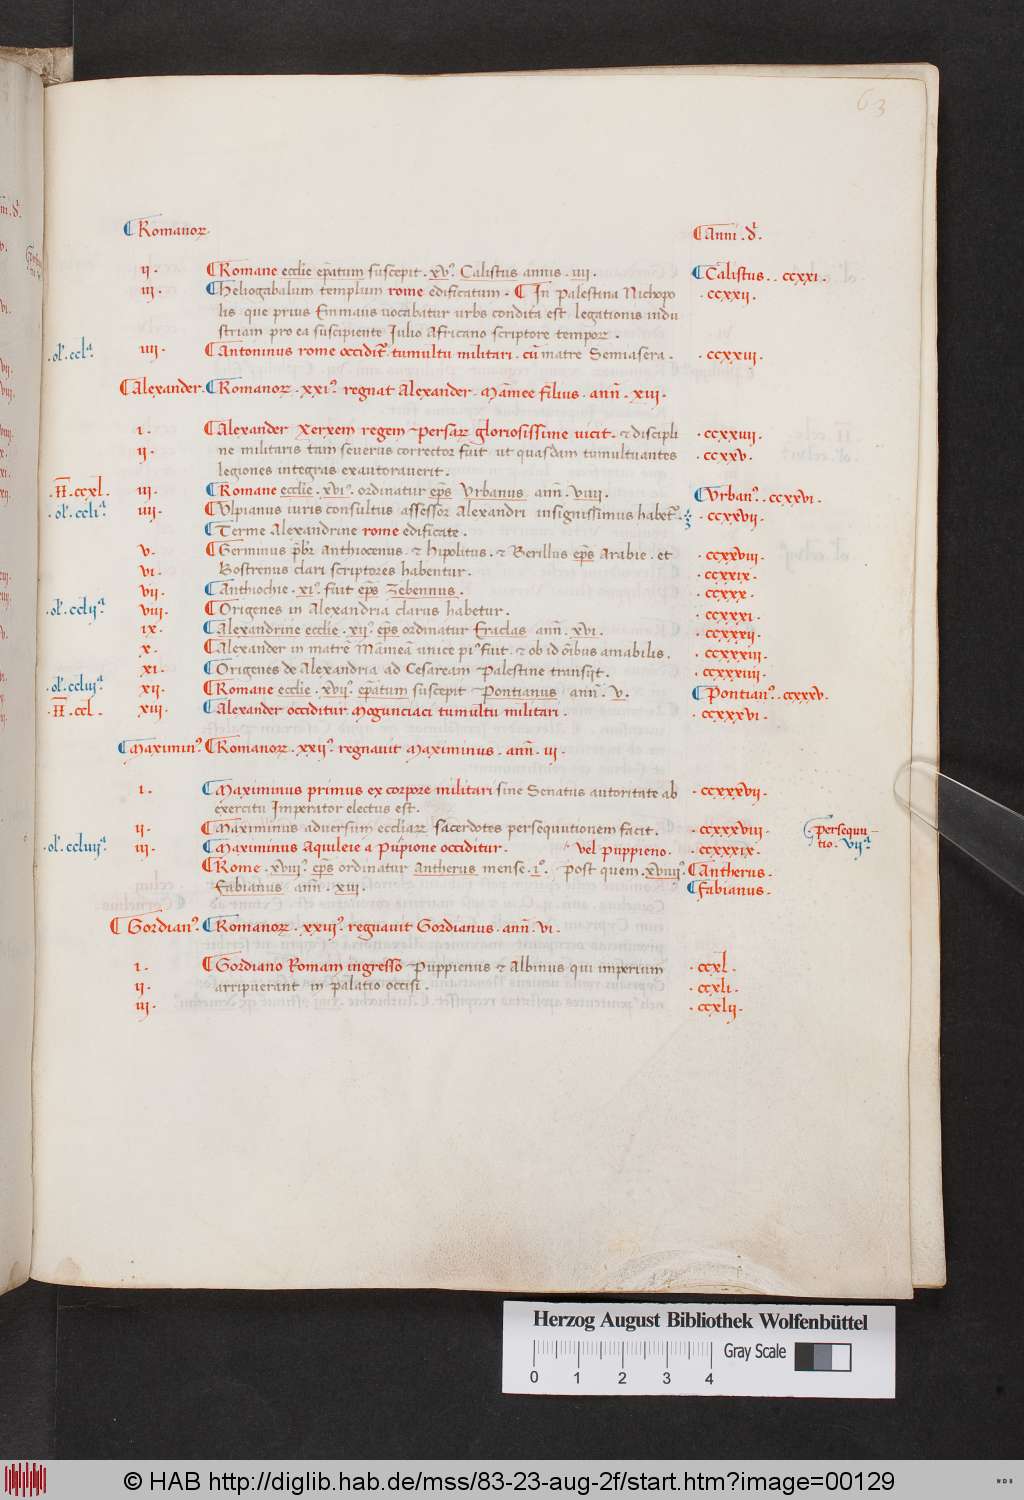 63
¶ Romanoꝝ.
¶ Anni . d̃.
ij . ¶ Romane ecclie ep̃atum suscepit . xv⁹. Calistus annis . iiij . ¶ Calistus . . ccxxi .
iij . ¶ heliogabalum templum rome edificatum . ¶ In palestina Nichopo . ccxxij .
lis que prius Emmaus uocabatur urbs condita est legationis indu
striam pro ea suscipiente Iulio Africano scriptore tempoꝝ .
. ol'. ccl.ª iiij . ¶ Antoninus rome occidit᷑ tumultu militari . cũ matre Semiasera . . ccxxiij .
¶ Alexander . ¶ Romanoꝝ . xxi⁹. regnat Alexander . Mãmee filius . anñ . xiij .
i . ¶ Alexander Xerxem regem persaꝝ gloriosissime uicit . & discipli . ccxxiiij .
ij . ne militaris tam seuerus corrector fuit ut quasdam tumultuantes . ccxxv .
legiones integras exautorauerit .
. H̃ . ccxl . iij . ¶ Romane ecclie . xvi⁹. ordinatur ep̃s Vrbanus anñ . viiij . ¶ Vrban⁹. . ccxxvi .
. ol'. ccli.ª iiij . ¶ Vlpianus iuris consultus assessor Alexandri insignissimus habet᷑ . . ccxxvij .
¶ Terme Alexandrine rome edificate .
v . ¶ Germinus p̃br Anthiocenus . & hipolitus . & Berillus ep̃s Arabie . et . ccxxviij .
vi . Bostrenus clari scriptores habentur . . ccxxix .
vij . ¶ Anthiochie . xi⁹. fuit ep̃s Zebennus . . ccxxx .
. ol'. cclij.ª viij . ¶ Origenes in Alexandria clarus habetur . . ccxxxi .
ix . ¶ Alexandrine ecclie . xij⁹. ep̃s ordinatur Eraclas anñ . xvi . . ccxxxij .
x . ¶ Alexander in matrẽ Mãmeã unice pi⁹ fuit . & ob id õibus amabilis . . ccxxxiij .
xi . ¶ Origenes de Alexandria ad Cesaream Palestine transijt . . ccxxxiiij .
. ol'. ccliij.ª xij . ¶ Romane ecclie . xvij⁹. ep̃atum suscepit Pontianus anñ . v . ¶ Pontian⁹. . ccxxxv .
. H̃ . ccl . xiij . ¶ Alexander occiditur Mogunciaci tumultu militari . . ccxxxvi .
¶ Maximin⁹. ¶ Romanoꝝ . xxij⁹. regnauit Maximinus . anñ . iij .
i . ¶ Maximinus primus ex corpore militari sine Senatus autoritate ab . ccxxxvij .
exercitu Imperator electus est .
ij . ¶ Maximinus aduersum eccliaꝝ sacerdotes persequutionem facit . . ccxxxviij . persequu-
. ol'. ccliiij.ª iij . ¶ Maximinus Aquileie a Pupione occiditur . vel puppieno . . ccxxxix . tio . vij.ª
¶ Rome . xviij⁹. ep̃s ordinatur Antherus mense . i⁹. post quem . xviiij⁹. ¶ Antherus .
Fabianus anñ . xiij . ¶ Fabianus .
¶ Gordian⁹. ¶ Romanoꝝ . xxiij⁹. regnauit Gordianus . anñ . vi .
i . ¶ Gordiano Romam ingresso Puppienus & Albinus qui imperium . ccxl .
ij . arripuerant in palatio occisi . . ccxli .
iij . . ccxlij .
Herzog August Bibliothek Wolfenbüttel
Gray Scale
0 1 2 3 4
© HAB http://diglib.hab.de/mss/83-23-aug-2f/start.htm?image=00129